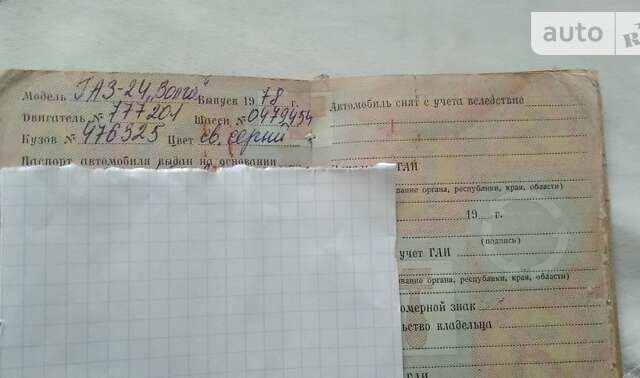 auto
R
Модель ГАЗ-24 „Волга" Выпуск 1978 г.
Двигатель № 177201 Шасси № 0472454
Кузов № 476325 Цвет св. серый
Паспорт автомобиля выдан на основании
Автомобиль снят с учета вследствие
ГАИ
вание органа, республики, края, области)
19 г.
(подпись)
учет ГАИ
вание органа, республики, края, области)
омерной знак
ьство владельца
ГАИ